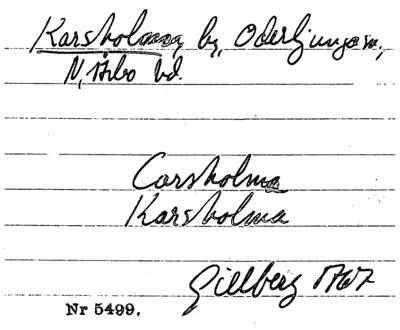 Karsholma, by, Oderljunga sn,
N. Åsbo hd.
Carsholma
Karsholma
Gillberg 1767
Nr 5499.